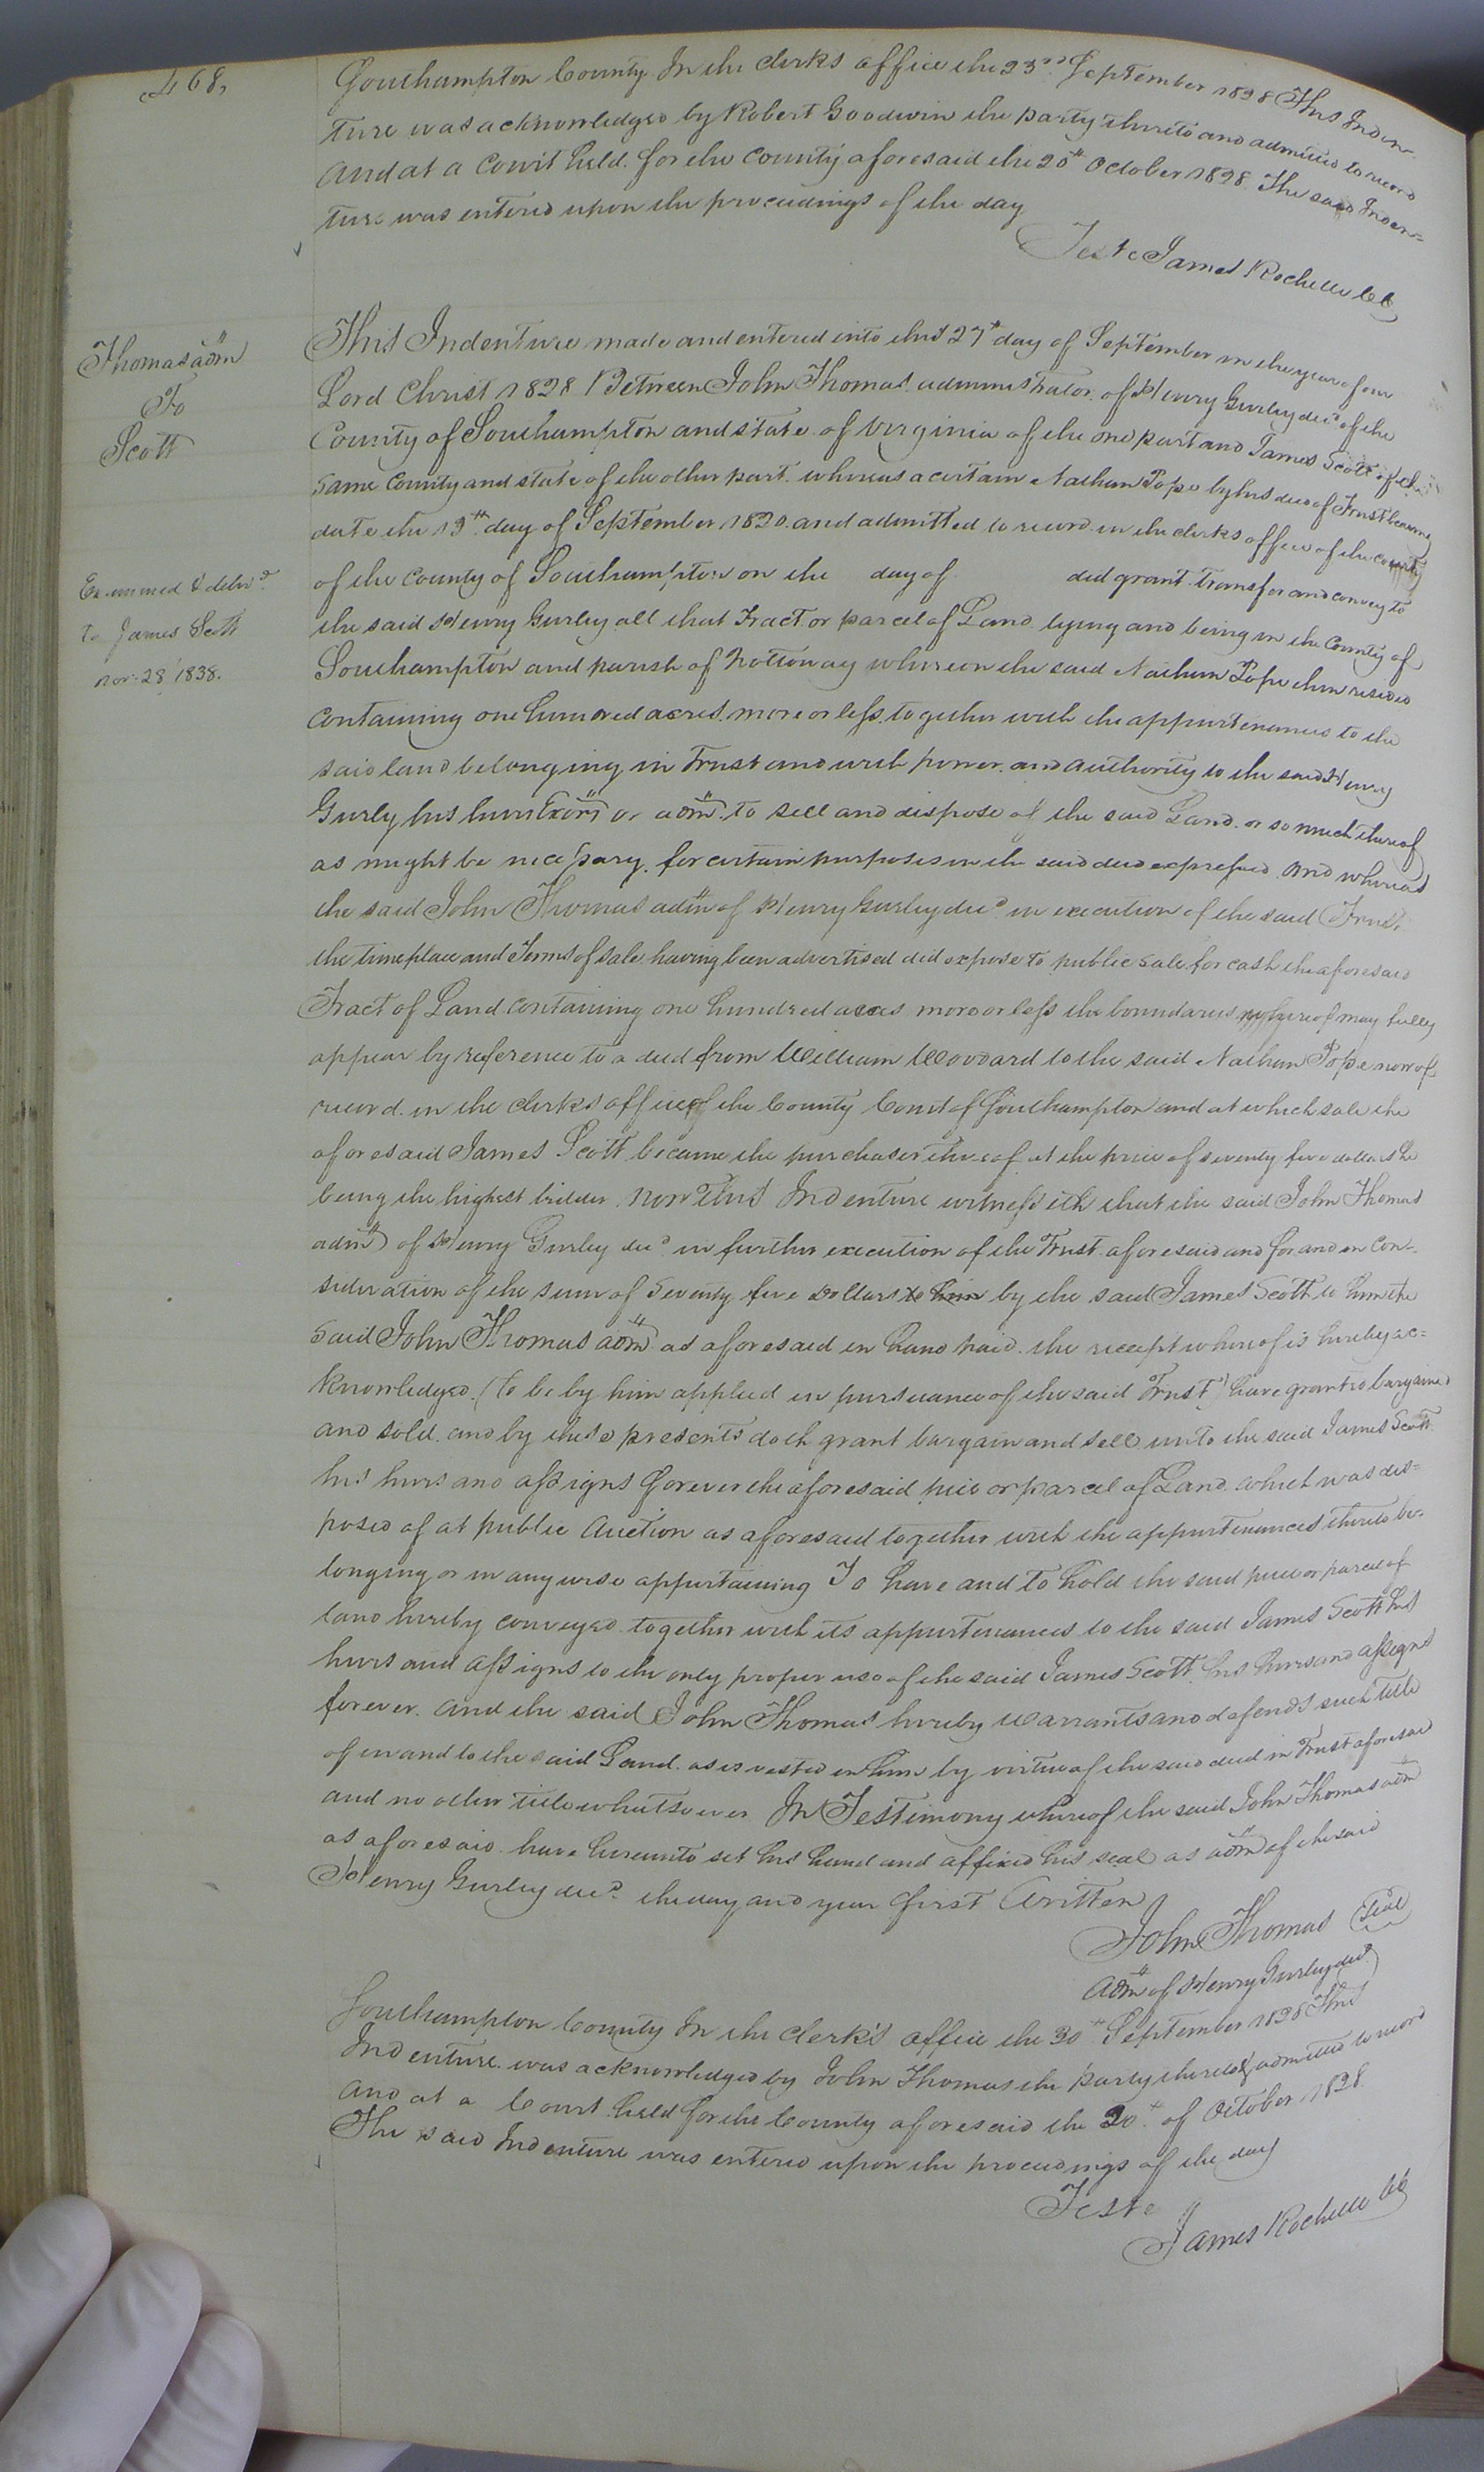 468,
Southampton County In the clerks office the 23rd September 1828 This Inden-
ture was acknowledged by Robert Goodwin the party thereto and admitted to record
and at a Court held for the County aforesaid the 20th October 1828. The said Inden-
ture was entered upon the proceedings of the day
Teste James Rochelle CC
Thomas adm
To
Scott
This Indenture made and entered into this 27th day of September in the year of our
Lord Christ 1828 Between John Thomas administrator of Henry Gurley decd of the
County of Southampton and state of Virginia of the one part and James Scott of the
same County and state of the other part. whereas a certain Nathan Pope by his deed of Trust bearing
date the 19th day of September 1820. and admitted to record in the clerks office of the county
Examined & delivd
To James Scott
Nov. 28 1838.
of the County of Southampton on the day of did grant transfer and convey to
the said Henry Gurley all that Tract or parcel of Land lying and being in the County of
Southampton and parish of Nottoway whereon the said Nathan Pope then resided
containing one hundred acres more or less, together with the appurtenances to the
said land belonging in Trust and with power and authority to the said Henry
Gurley his heirs Exors or adm. to sell and dispose of the said Land or so much thereof
as might be necessary for certain purposes in the said deed expressed and whereas
the said John Thomas adm of Henry Gurley decd in execution of the said Trust,
the time place and Terms of sale having been advertised did expose to public sale for cash the aforesaid
Tract of Land containing one hundred acres more or less the boundaries whereof may fully
appear by reference to a deed from William Woodard to the said Nathan Pope now of
record in the clerks office of the County Court of Southampton and at which sale the
aforesaid James Scott became the purchaser thereof at the price of seventy five dollars he
being the highest bidder. Now This Indenture witnesseth that the said John Thomas
adm of Henry Gurley decd in further execution of the Trust aforesaid and for and in con-
sideration of the sum of Seventy five Dollars to him by the said James Scott to him the
said John Thomas adm as aforesaid in hand paid. the receipt whereof is hereby ac=
knowledged. (to be by him applied in pursuance of the said Trust) have granted bargained
and sold. and by these presents doth grant bargain and sell unto the said James Scott
his heirs and assigns forever the aforesaid piece or parcel of Land which was dis=
posed of at public Auction as aforesaid together with the appurtenances thereto be-
longing or in any wise appertaining To have and to hold the said piece or parcel of
land hereby conveyed together with its appurtenances to the said James Scott his
heirs and assigns to the only proper use of the said James Scott his heirs and assigns
forever. and the said John Thomas hereby warrants and defends such title
of in and to the said Land as is vested in him by virtue of the said deed in Trust aforesaid
and no other title whatsoever In Testimony whereof the said John Thomas adm
as aforesaid have hereunto set his hand and affixed his seal as adm of the said
Henry Gurley decd the day and year first Written
John Thomas Seal
adm of Henry Gurley decd
Southampton County In the Clerk's office the 30th September 1828 This
Indenture was acknowledged by John Thomas the party thereto & admitted to record
and at a Court held for the County aforesaid the 20th of October 1828
The said Indenture was entered upon the proceedings of the day
Teste
James Rochelle CC